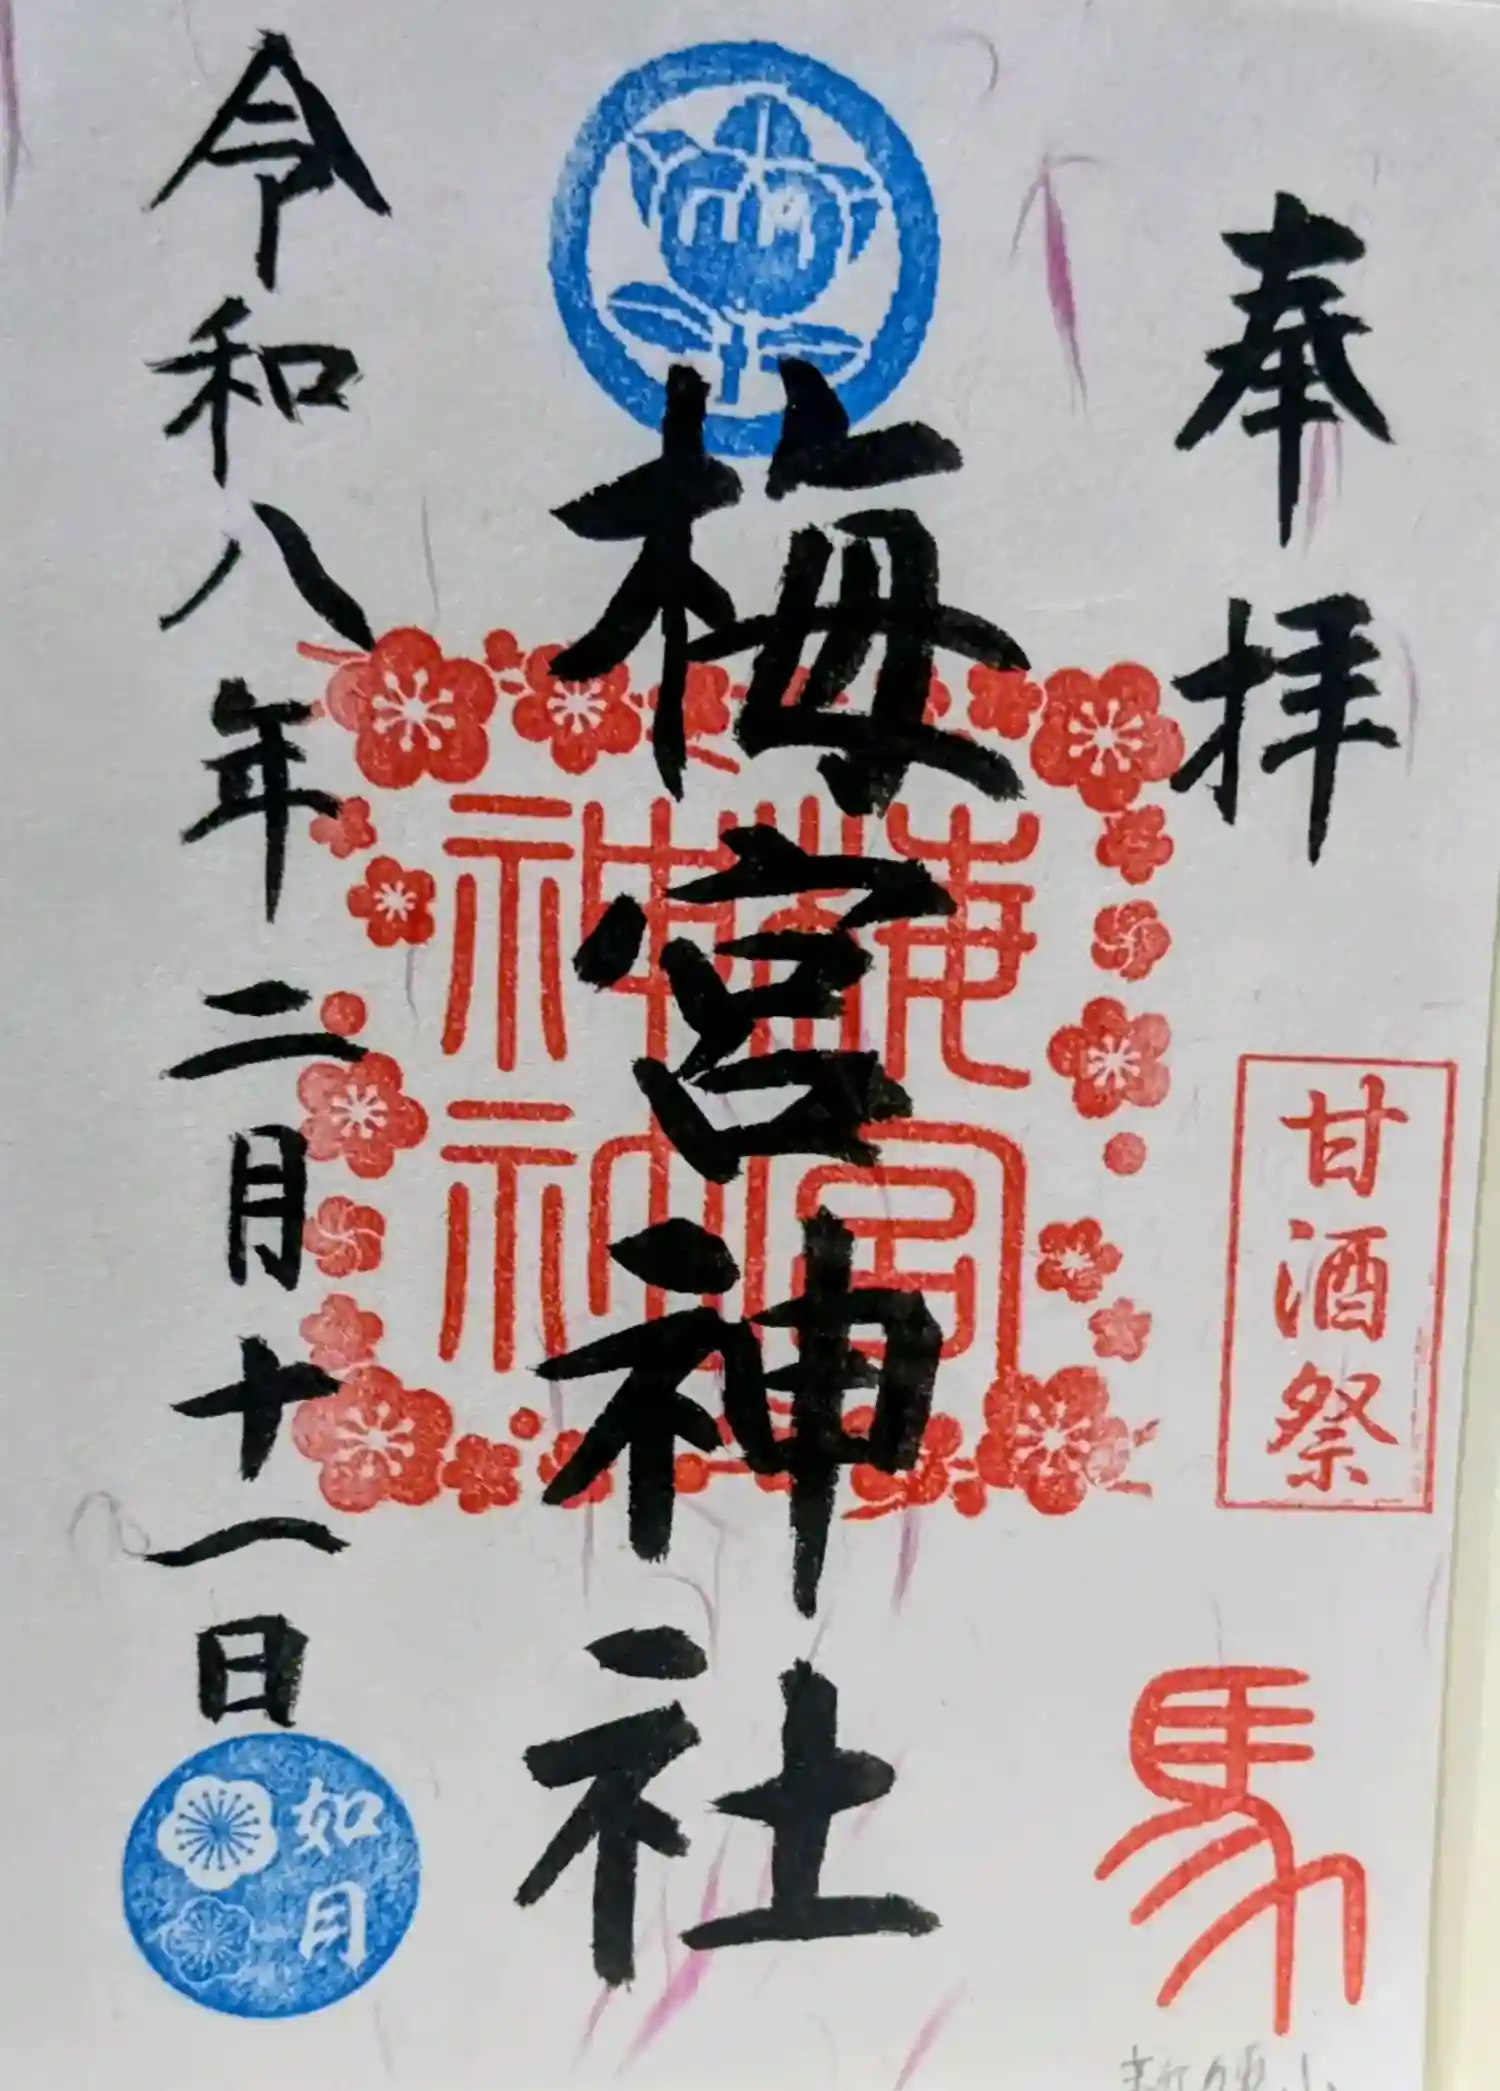 奉拝
甘酒祭
馬
梅宮神社
梅宮
神神
令和八年二月十一日
如月